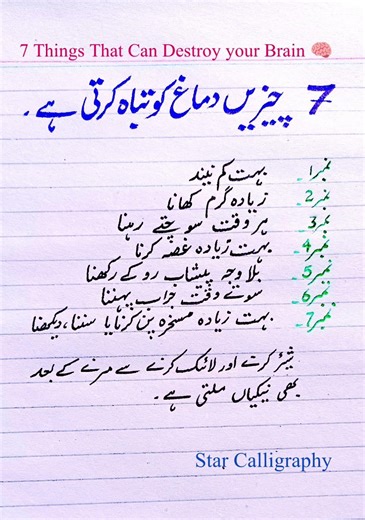 7 Things That Can Destroy your Brain 🧠
7 چیزیں دماغ کو تباہ کرتی ہے ۔
نمبر1۔ بہت کم نیند
نمبر2۔ زیادہ گرم کھانا
نمبر3۔ ہر وقت سوچتے رہنا
نمبر4۔ بہت زیادہ غصہ کرنا
نمبر5۔ بلا وجہ پیشاب روکے رکھنا
نمبر6۔ سوتے وقت جراب پہننا
نمبر7۔ بہت زیادہ مسخرہ پن کرنا یا سننا، دیکھنا
شیئر کرتے اور لائک کرنے سے مرنے کے بعد
بھی نیکیاں ملتی ہے ۔
Star Calligraphy